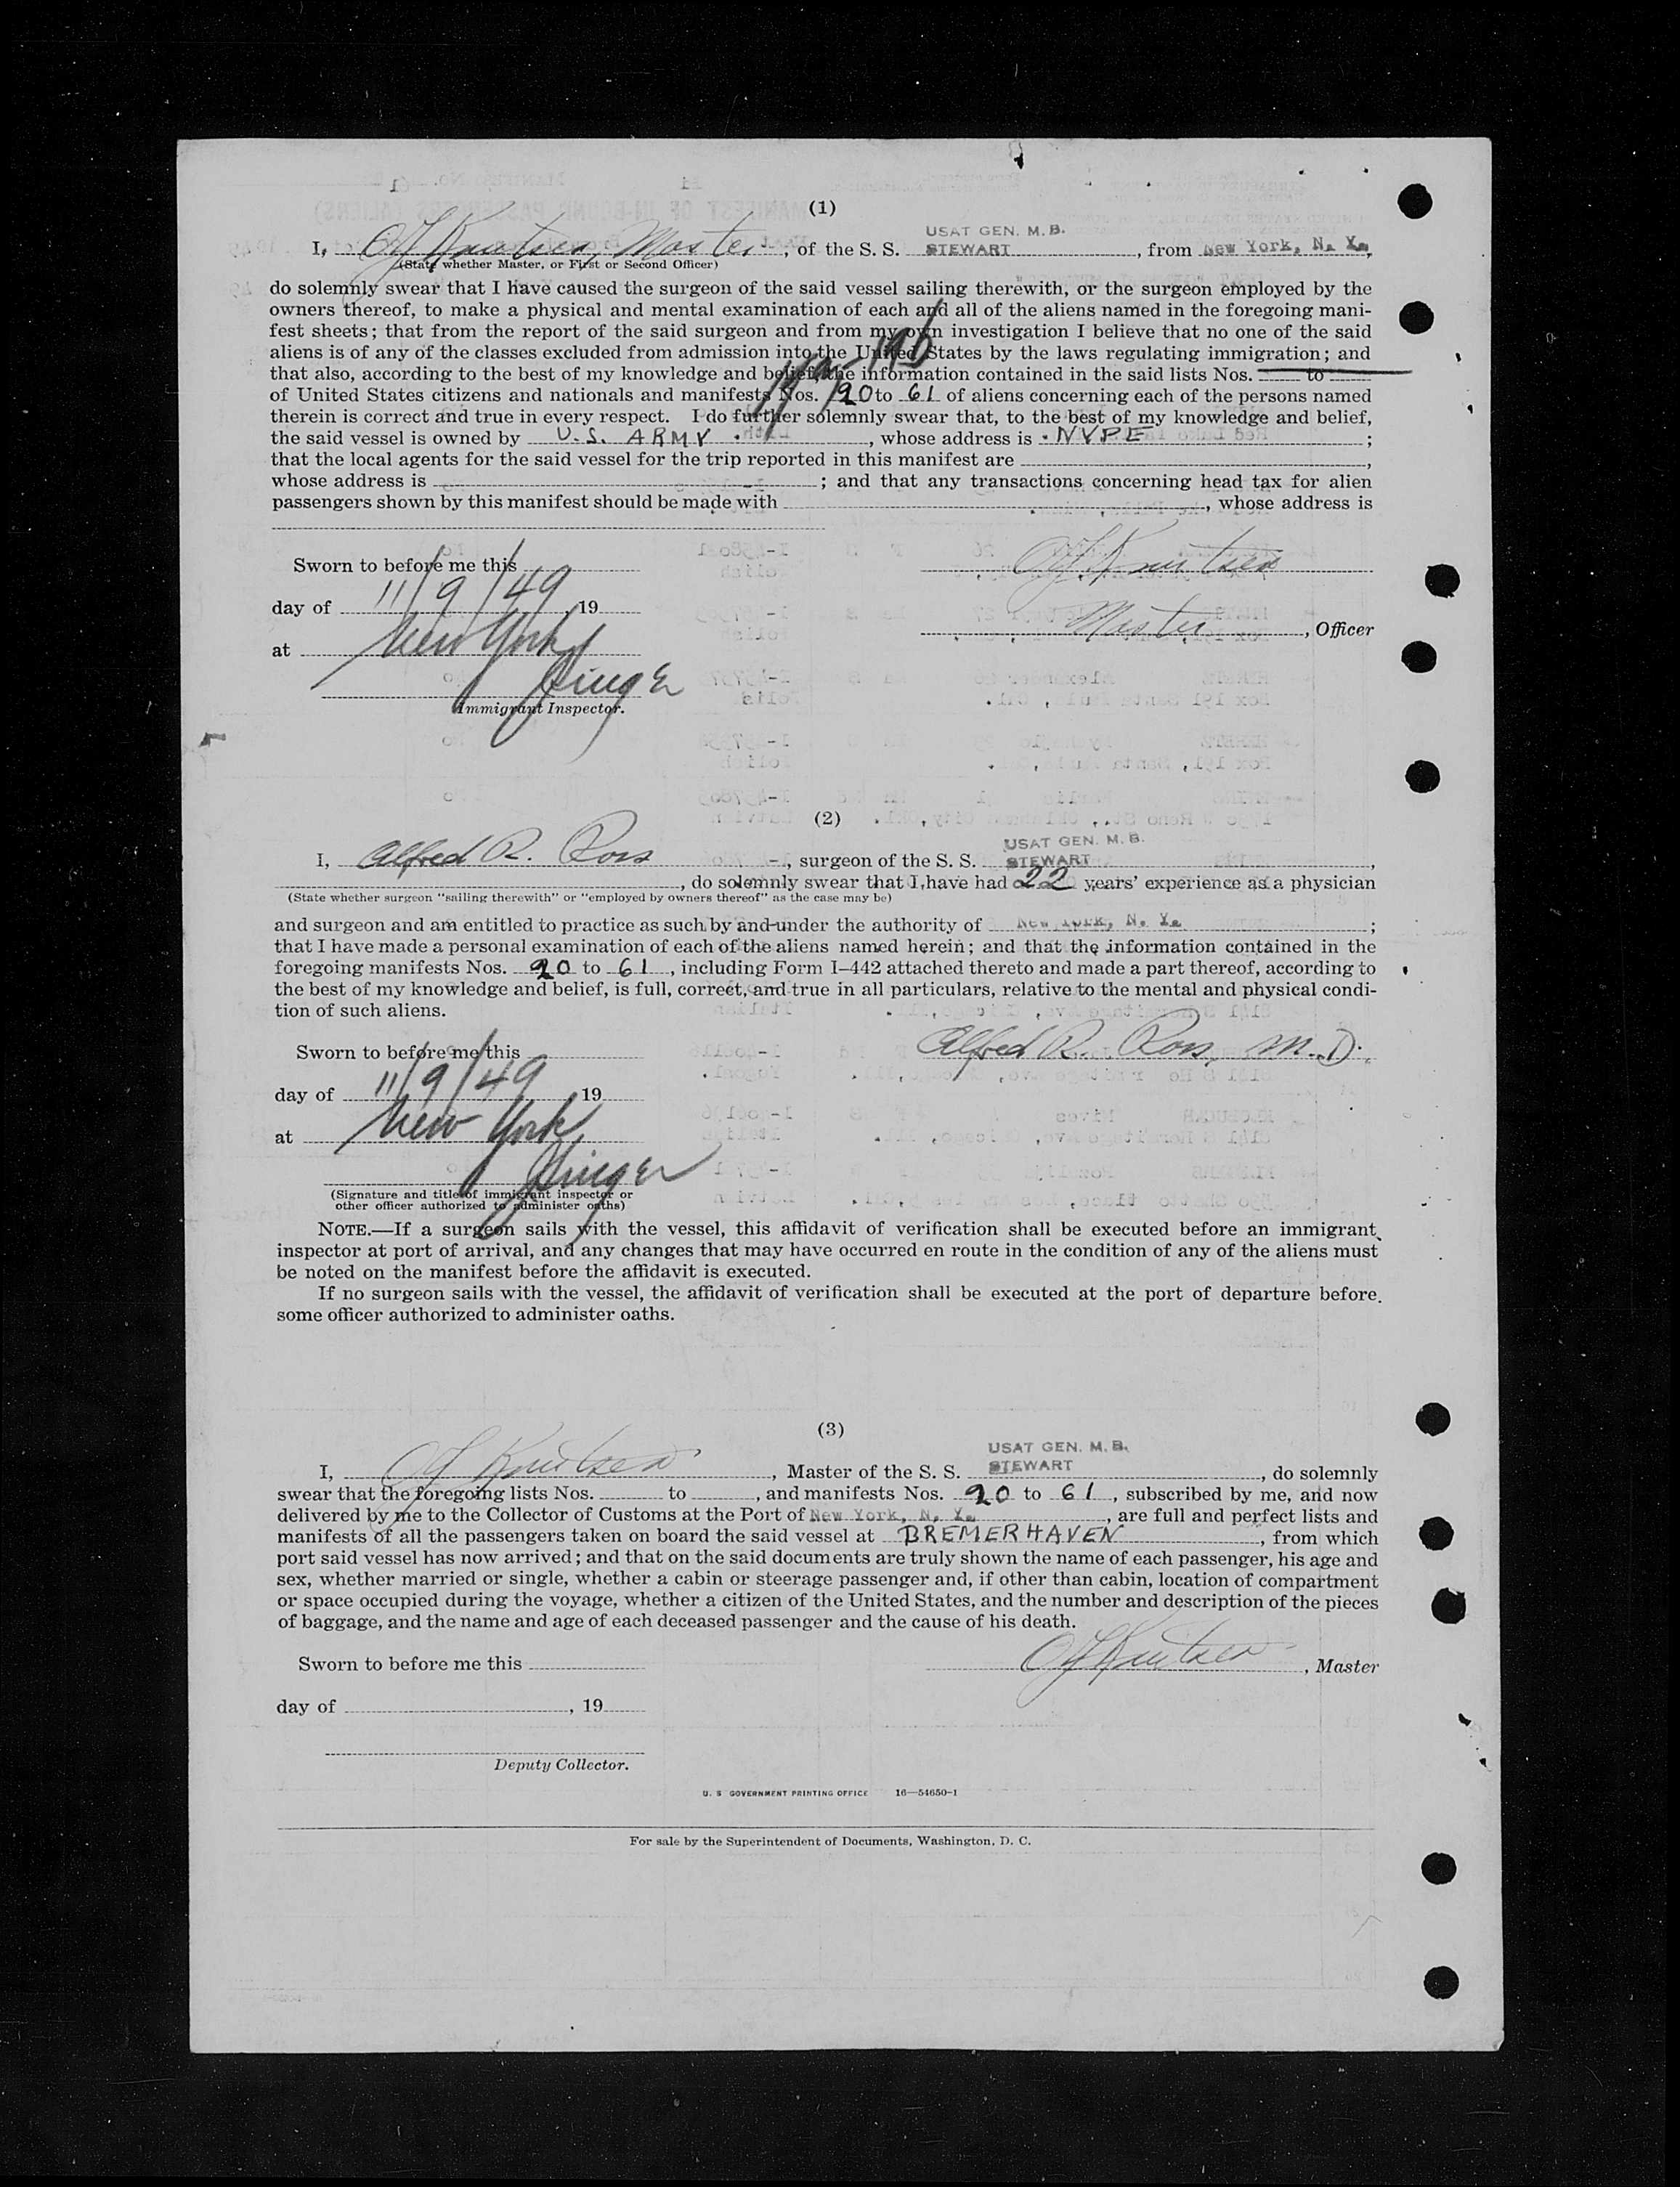 (1)
I, O J Knutsen, Master, of the S. S. USAT GEN. M. B. STEWART, from New York, N. Y.,
(State whether Master, or First or Second Officer)
do solemnly swear that I have caused the surgeon of the said vessel sailing therewith, or the surgeon employed by the
owners thereof, to make a physical and mental examination of each and all of the aliens named in the foregoing mani-
fest sheets; that from the report of the said surgeon and from my own investigation I believe that no one of the said
aliens is of any of the classes excluded from admission into the United States by the laws regulating immigration; and
that also, according to the best of my knowledge and belief, the information contained in the said lists Nos. to
of United States citizens and nationals and manifests Nos. 20 to 61 of aliens concerning each of the persons named
therein is correct and true in every respect. I do further solemnly swear that, to the best of my knowledge and belief,
the said vessel is owned by U.S. ARMY, whose address is NYPE;
that the local agents for the said vessel for the trip reported in this manifest are ,
whose address is ; and that any transactions concerning head tax for alien
passengers shown by this manifest should be made with , whose address is
Sworn to before me this O J Knutsen
day of 11/9/49 19 Master, Officer
at New York
Immigrant Inspector.
(2)
I, Alfred R. Ross, surgeon of the S. S. USAT GEN. M. B. STEWART,
, do solemnly swear that I have had 22 years' experience as a physician
(State whether surgeon "sailing therewith" or "employed by owners thereof" as the case may be)
and surgeon and am entitled to practice as such by and under the authority of New York, N. Y.;
that I have made a personal examination of each of the aliens named herein; and that the information contained in the
foregoing manifests Nos. 20 to 61, including Form I-442 attached thereto and made a part thereof, according to
the best of my knowledge and belief, is full, correct, and true in all particulars, relative to the mental and physical condi-
tion of such aliens.
Sworn to before me this Alfred R. Ross, M.D.
day of 11/9/49 19
at New York
(Signature and title of immigrant inspector or
other officer authorized to administer oaths)
NOTE.—If a surgeon sails with the vessel, this affidavit of verification shall be executed before an immigrant
inspector at port of arrival, and any changes that may have occurred en route in the condition of any of the aliens must
be noted on the manifest before the affidavit is executed.
If no surgeon sails with the vessel, the affidavit of verification shall be executed at the port of departure before
some officer authorized to administer oaths.
(3)
I, O J Knutsen, Master of the S. S. USAT GEN. M. B. STEWART, do solemnly
swear that the foregoing lists Nos. to , and manifests Nos. 20 to 61, subscribed by me, and now
delivered by me to the Collector of Customs at the Port of New York, N. Y., are full and perfect lists and
manifests of all the passengers taken on board the said vessel at BREMERHAVEN, from which
port said vessel has now arrived; and that on the said documents are truly shown the name of each passenger, his age and
sex, whether married or single, whether a cabin or steerage passenger and, if other than cabin, location of compartment
or space occupied during the voyage, whether a citizen of the United States, and the number and description of the pieces
of baggage, and the name and age of each deceased passenger and the cause of his death.
Sworn to before me this O J Knutsen, Master
day of , 19
Deputy Collector.
U. S GOVERNMENT PRINTING OFFICE 16—54650-1
For sale by the Superintendent of Documents, Washington, D. C.